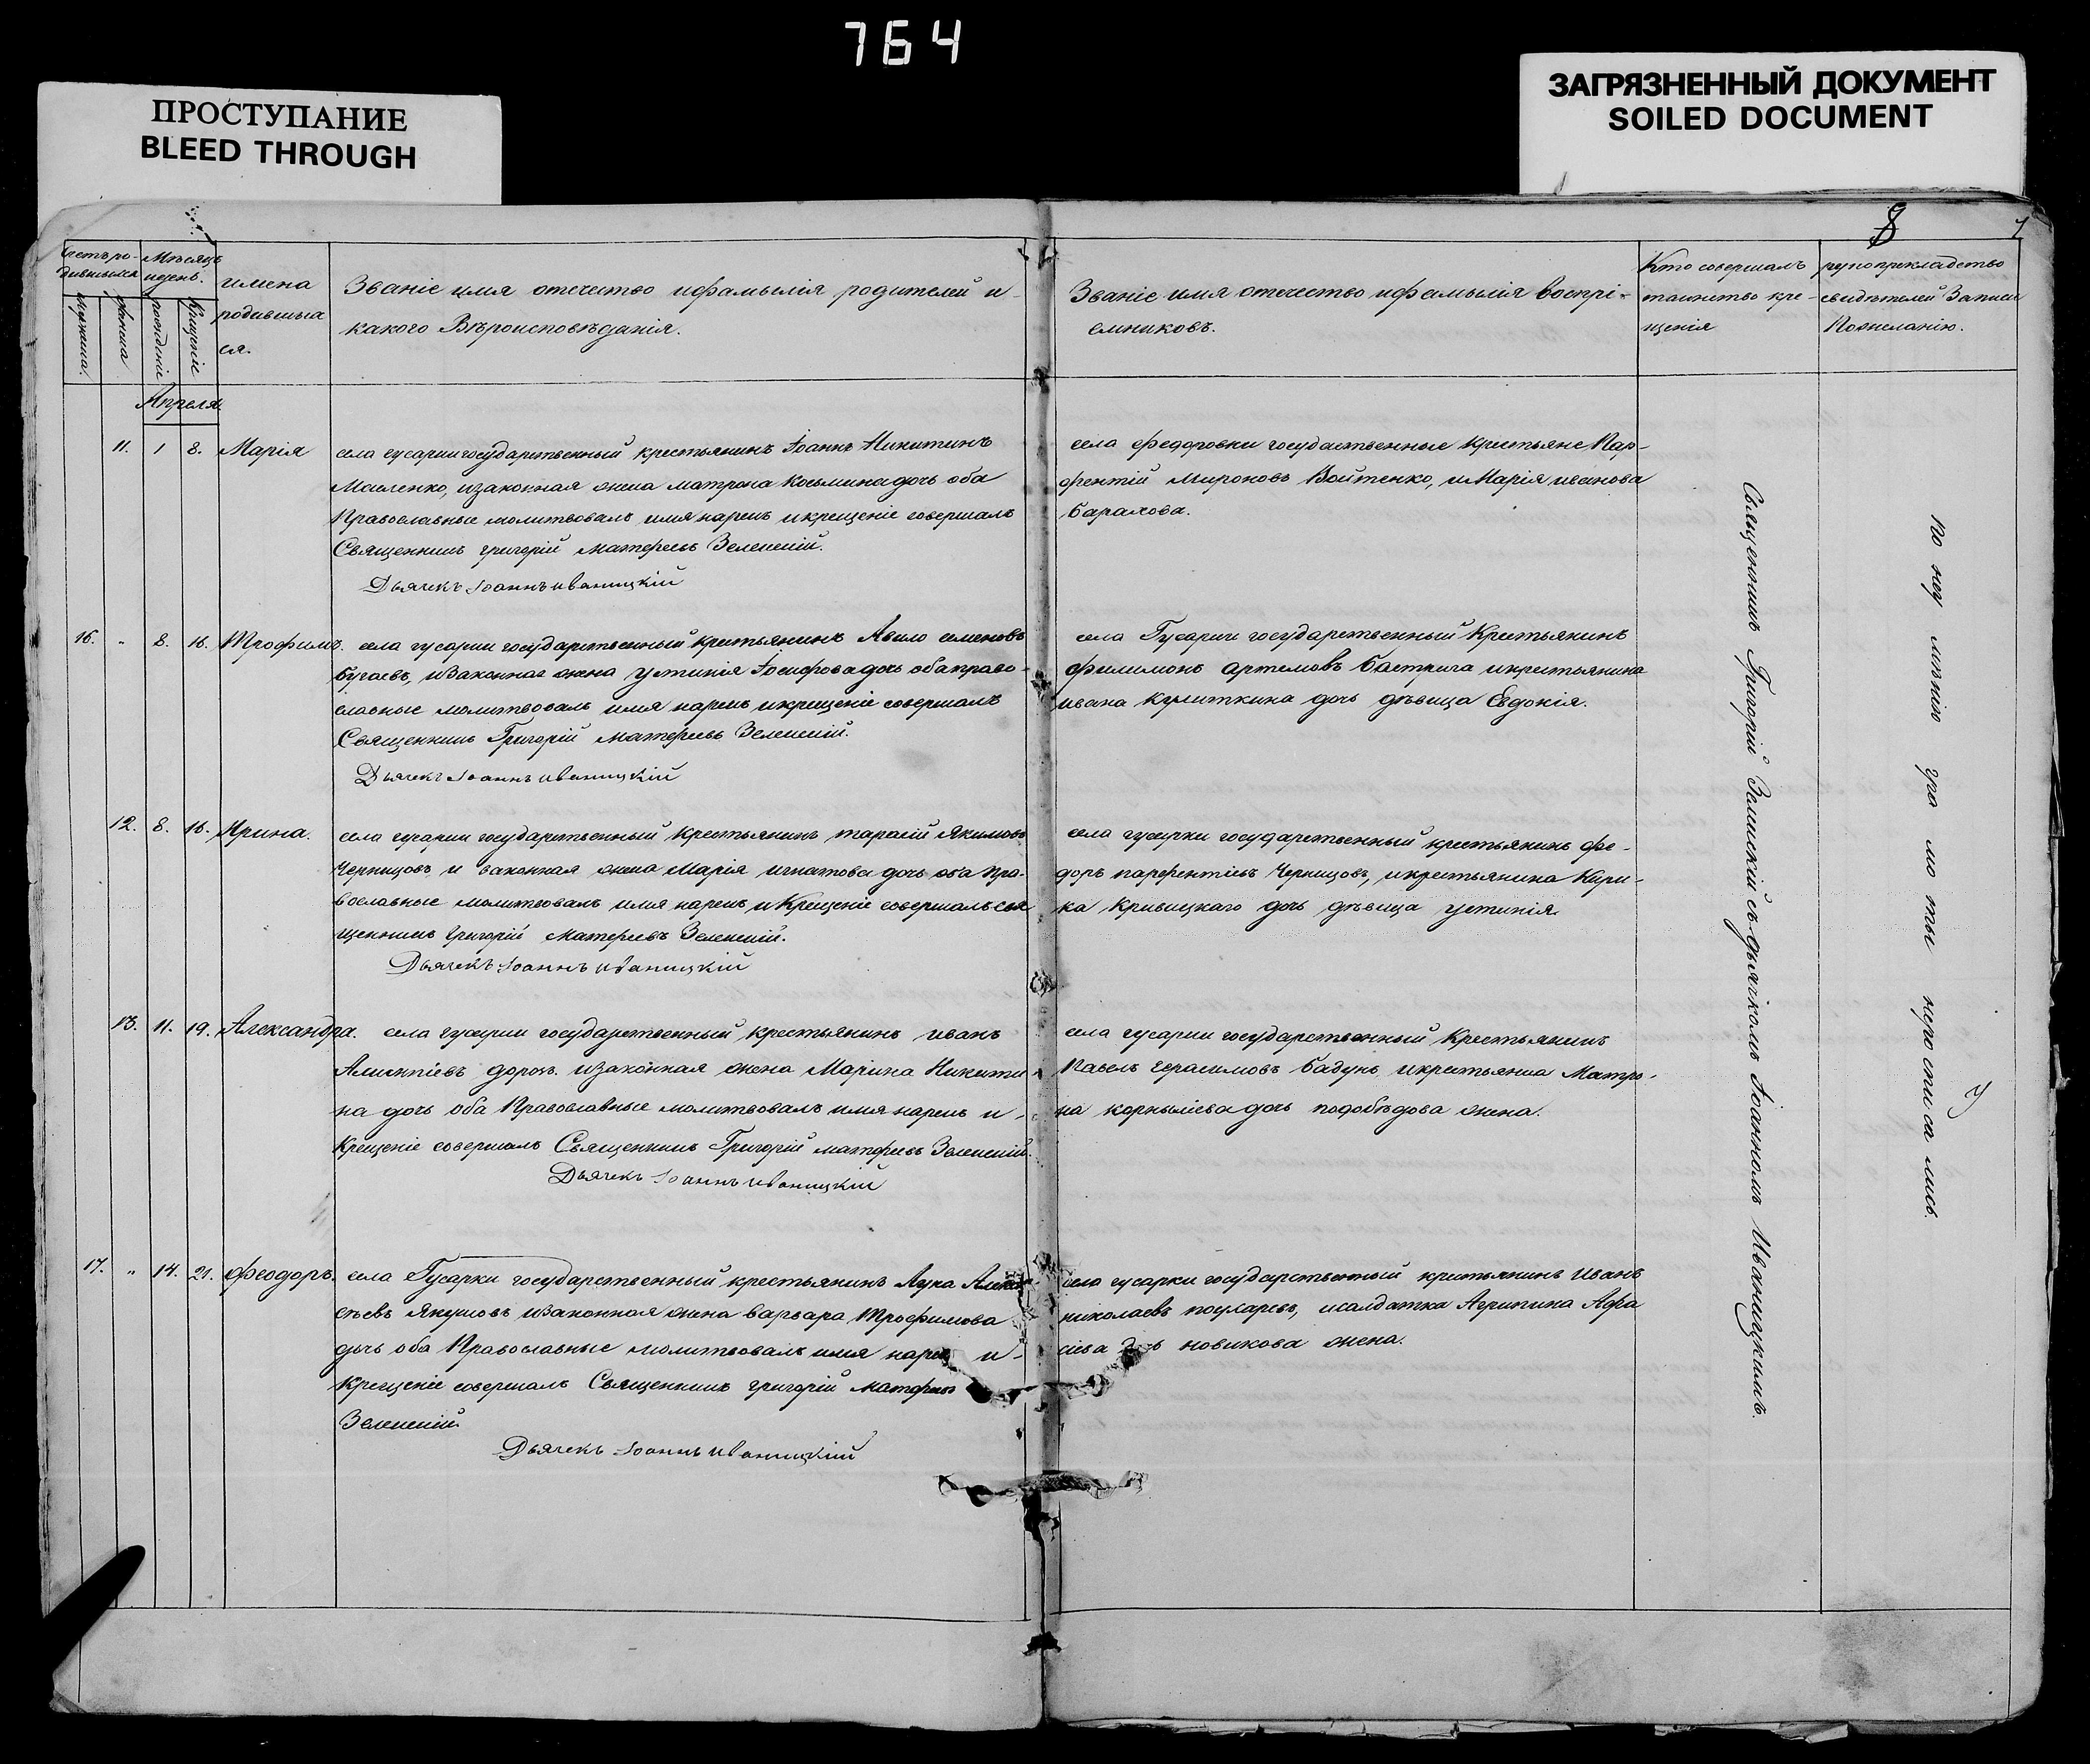 764
ПРОСТУПАНИЕ
BLEED THROUGH
ЗАГРЯЗНЕННЫЙ ДОКУМЕНТ
SOILED DOCUMENT
8
Счетъ ро-
дившихся
Мѣсяцъ
и день.
мужеска.
женска
рожденіе
Крещеніе
имена
родившыа
ся.
Званіе имя отечество и фамылія родителей и
какого Вѣроисповѣданія.
Званіе имя отечество и фамылія воспрі-
емниковъ.
Кто совершалъ
таинство кре-
щенія
рукоприкладство
свидѣтелей Записи
По желанію.
Апреля.
11. 1 8. Марія
села гусарки государственный крестьянинъ Іоаннъ Никитинъ
Масленко, и законная жена матрона Косьмина дочь оба
Православные молитвовалъ имя нарекъ и крещеніе совершалъ
Священникъ григорій матфеевъ Зеленскій.
Дьячекъ Іоаннъ иваницкій
села федоровки государственные крестьяне Пар-
фентій мироновъ Войтенко, и Марія иванова
барахова.
16. " 8. 16. Трофимъ.
села гусарки государственный крестьянинъ Авило семеновъ
бугаевъ, и Законная жена устинія Іосифова дочь оба право-
славные молитвовалъ имя нарекъ и крещеніе совершалъ
Священникъ Григорій матфеевъ Зеленскій.
Дьячекъ Іоаннъ иваницкій
села Гусарки государственный Крестьянинъ
филимонъ артемовъ бастрига и крестьянина
ивана кулиткина дочь дѣвица Евдокія.
12. 8. 16. Ирина.
села гусарки государственный крестьянинъ тарасій Якимовъ
Чернцовъ и законная жена Марія игнатова дочь оба пра-
вославные молитвовалъ имя нарекъ и Крещеніе совершалъ свя
щенникъ Григорій Матфеевъ Зеленскій.
Дьячекъ Іоаннъ иваницкій
села гусарки государственный крестьянинъ фе-
доръ парфентіевъ Чернцовъ, и крестьянина Кири-
ка Кривицкаго дочь дѣвица устинія.
13. 11. 19. Александра.
села гусарки государственный крестьянинъ иванъ
дорош. и законная жена Марина Никити
на дочь оба Православные молитвовалъ имя нарекъ и -
Крещеніе совершалъ Священникъ Григорій матфеевъ Зеленскій.
Дьячекъ Іоаннъ иваницкій
села гусарки государственный Крестьянинъ
Павелъ герасимовъ бадунъ и крестьянка Матро-
на корнылієва дочь подобѣдова жена.
17. " 14. 21. феодоръ.
села Гусарки государственный крестьянинъ Лука Алекс
ѣевъ Якушовъ и Законная жена варвара Трофимова
дочь оба Православные молитвовалъ имя нарекъ и -
Крещеніе совершалъ Священникъ григорій матфеевъ
Зеленскій.
Дьячекъ Іоаннъ иваницкій
села гусарки государственный крестьянинъ Иванъ
николаевъ и салдатка Агрипина Афа
сіева новикова жена.
Священникъ Григорій Зеленскій съ дьячкомъ Іоанномъ Иваницкимъ.
По неумѣнію грамоты неросписались.